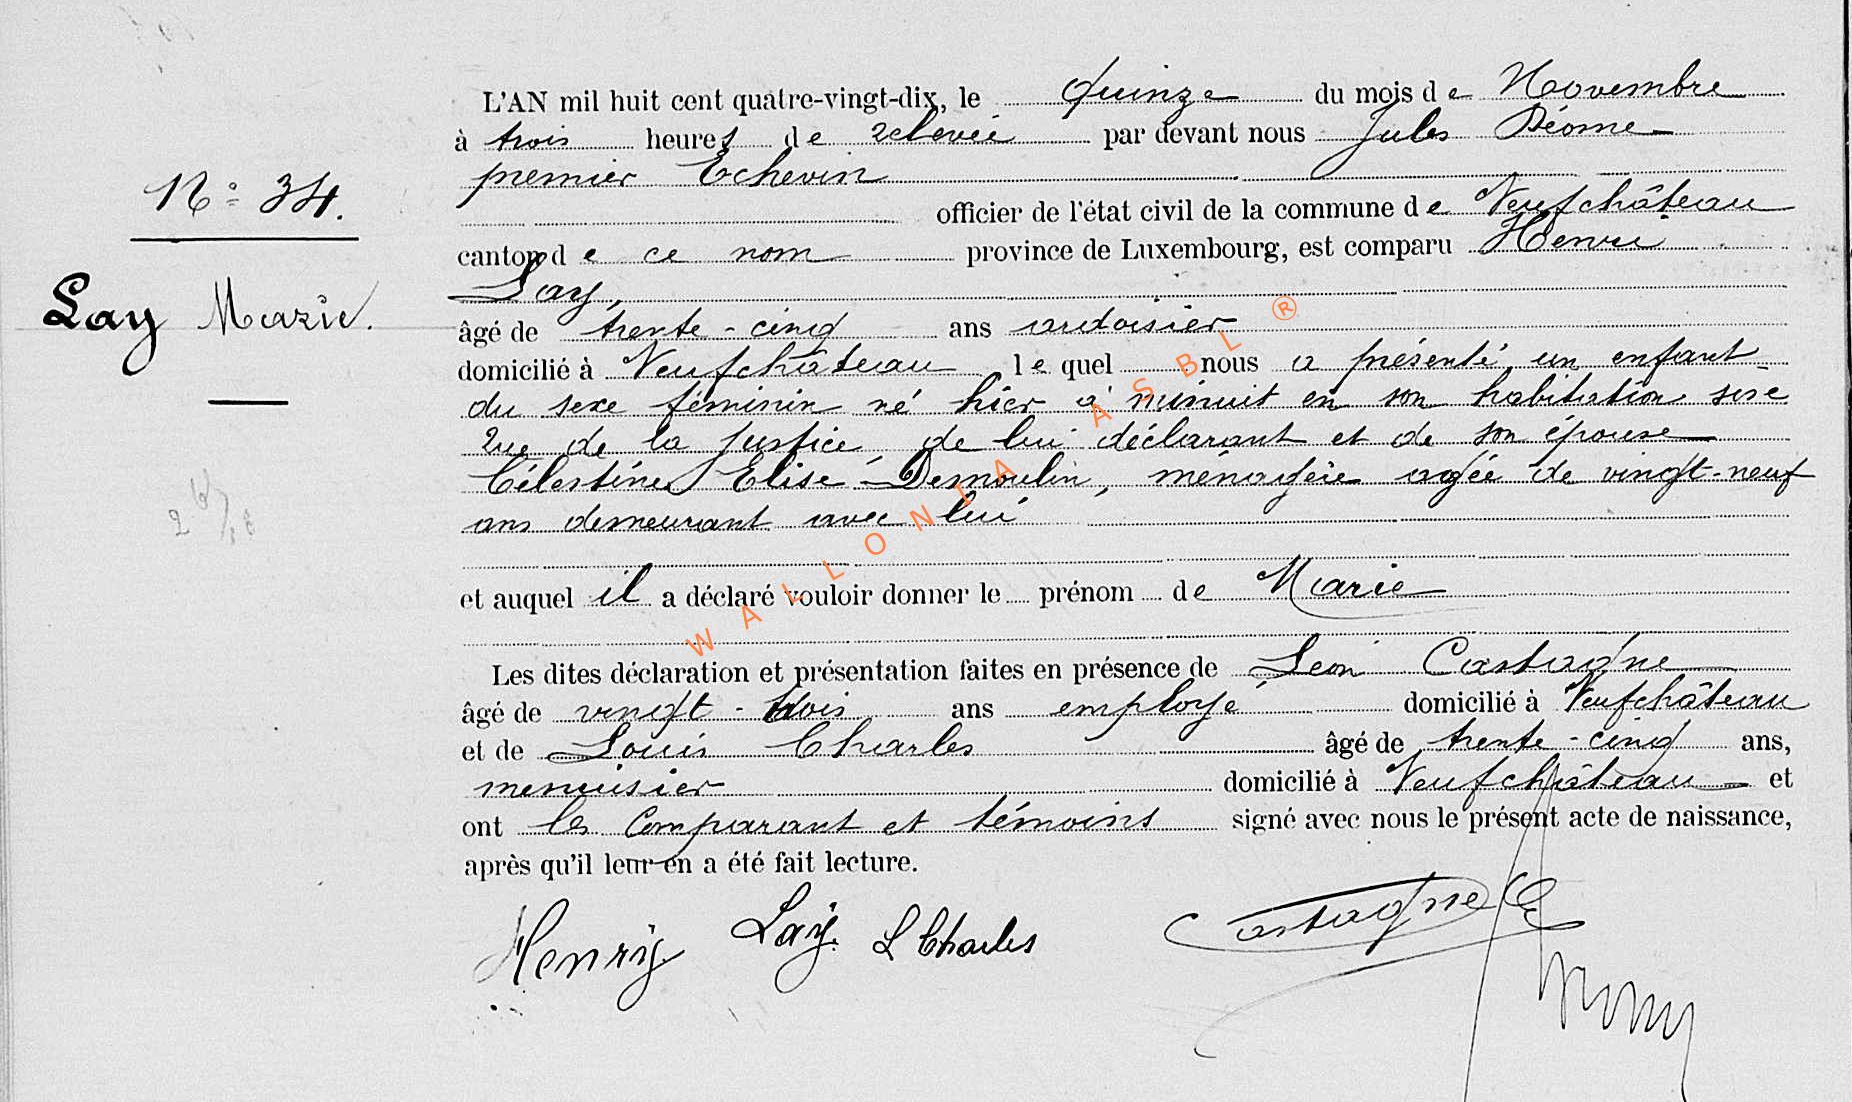 L'AN mil huit cent quatre-vingt-dix, le Quinze du mois de Novembre
à trois heures de relevée par devant nous Jules Déome
premier Echevin
N° 34.
officier de l'état civil de la commune de Neufchâteau
canton de ce nom province de Luxembourg, est comparu Henri
Lay,
Lay Marie.
âgé de trente-cinq ans ardoisier
domicilié à Neufchâteau lequel nous a présenté un enfant
du sexe féminin né hier à minuit en son habitation sise
rue de la Justice, de lui déclarant et de son épouse
Célestine Elise Demoulin, ménagère agée de vingt-neuf
ans demeurant avec lui
et auquel il a déclaré vouloir donner le prénom de Marie
Les dites déclaration et présentation faites en présence de Léon Castagne
âgé de vingt-trois ans employé domicilié à Neufchâteau
et de Louis Charles âgé de trente-cinq ans,
menuisier domicilié à Neufchâteau et
ont les Comparant et témoins signé avec nous le présent acte de naissance,
après qu'il leur en a été fait lecture.
Henry Laÿ. L Charles Castagne
WALLONIA ASBL ®